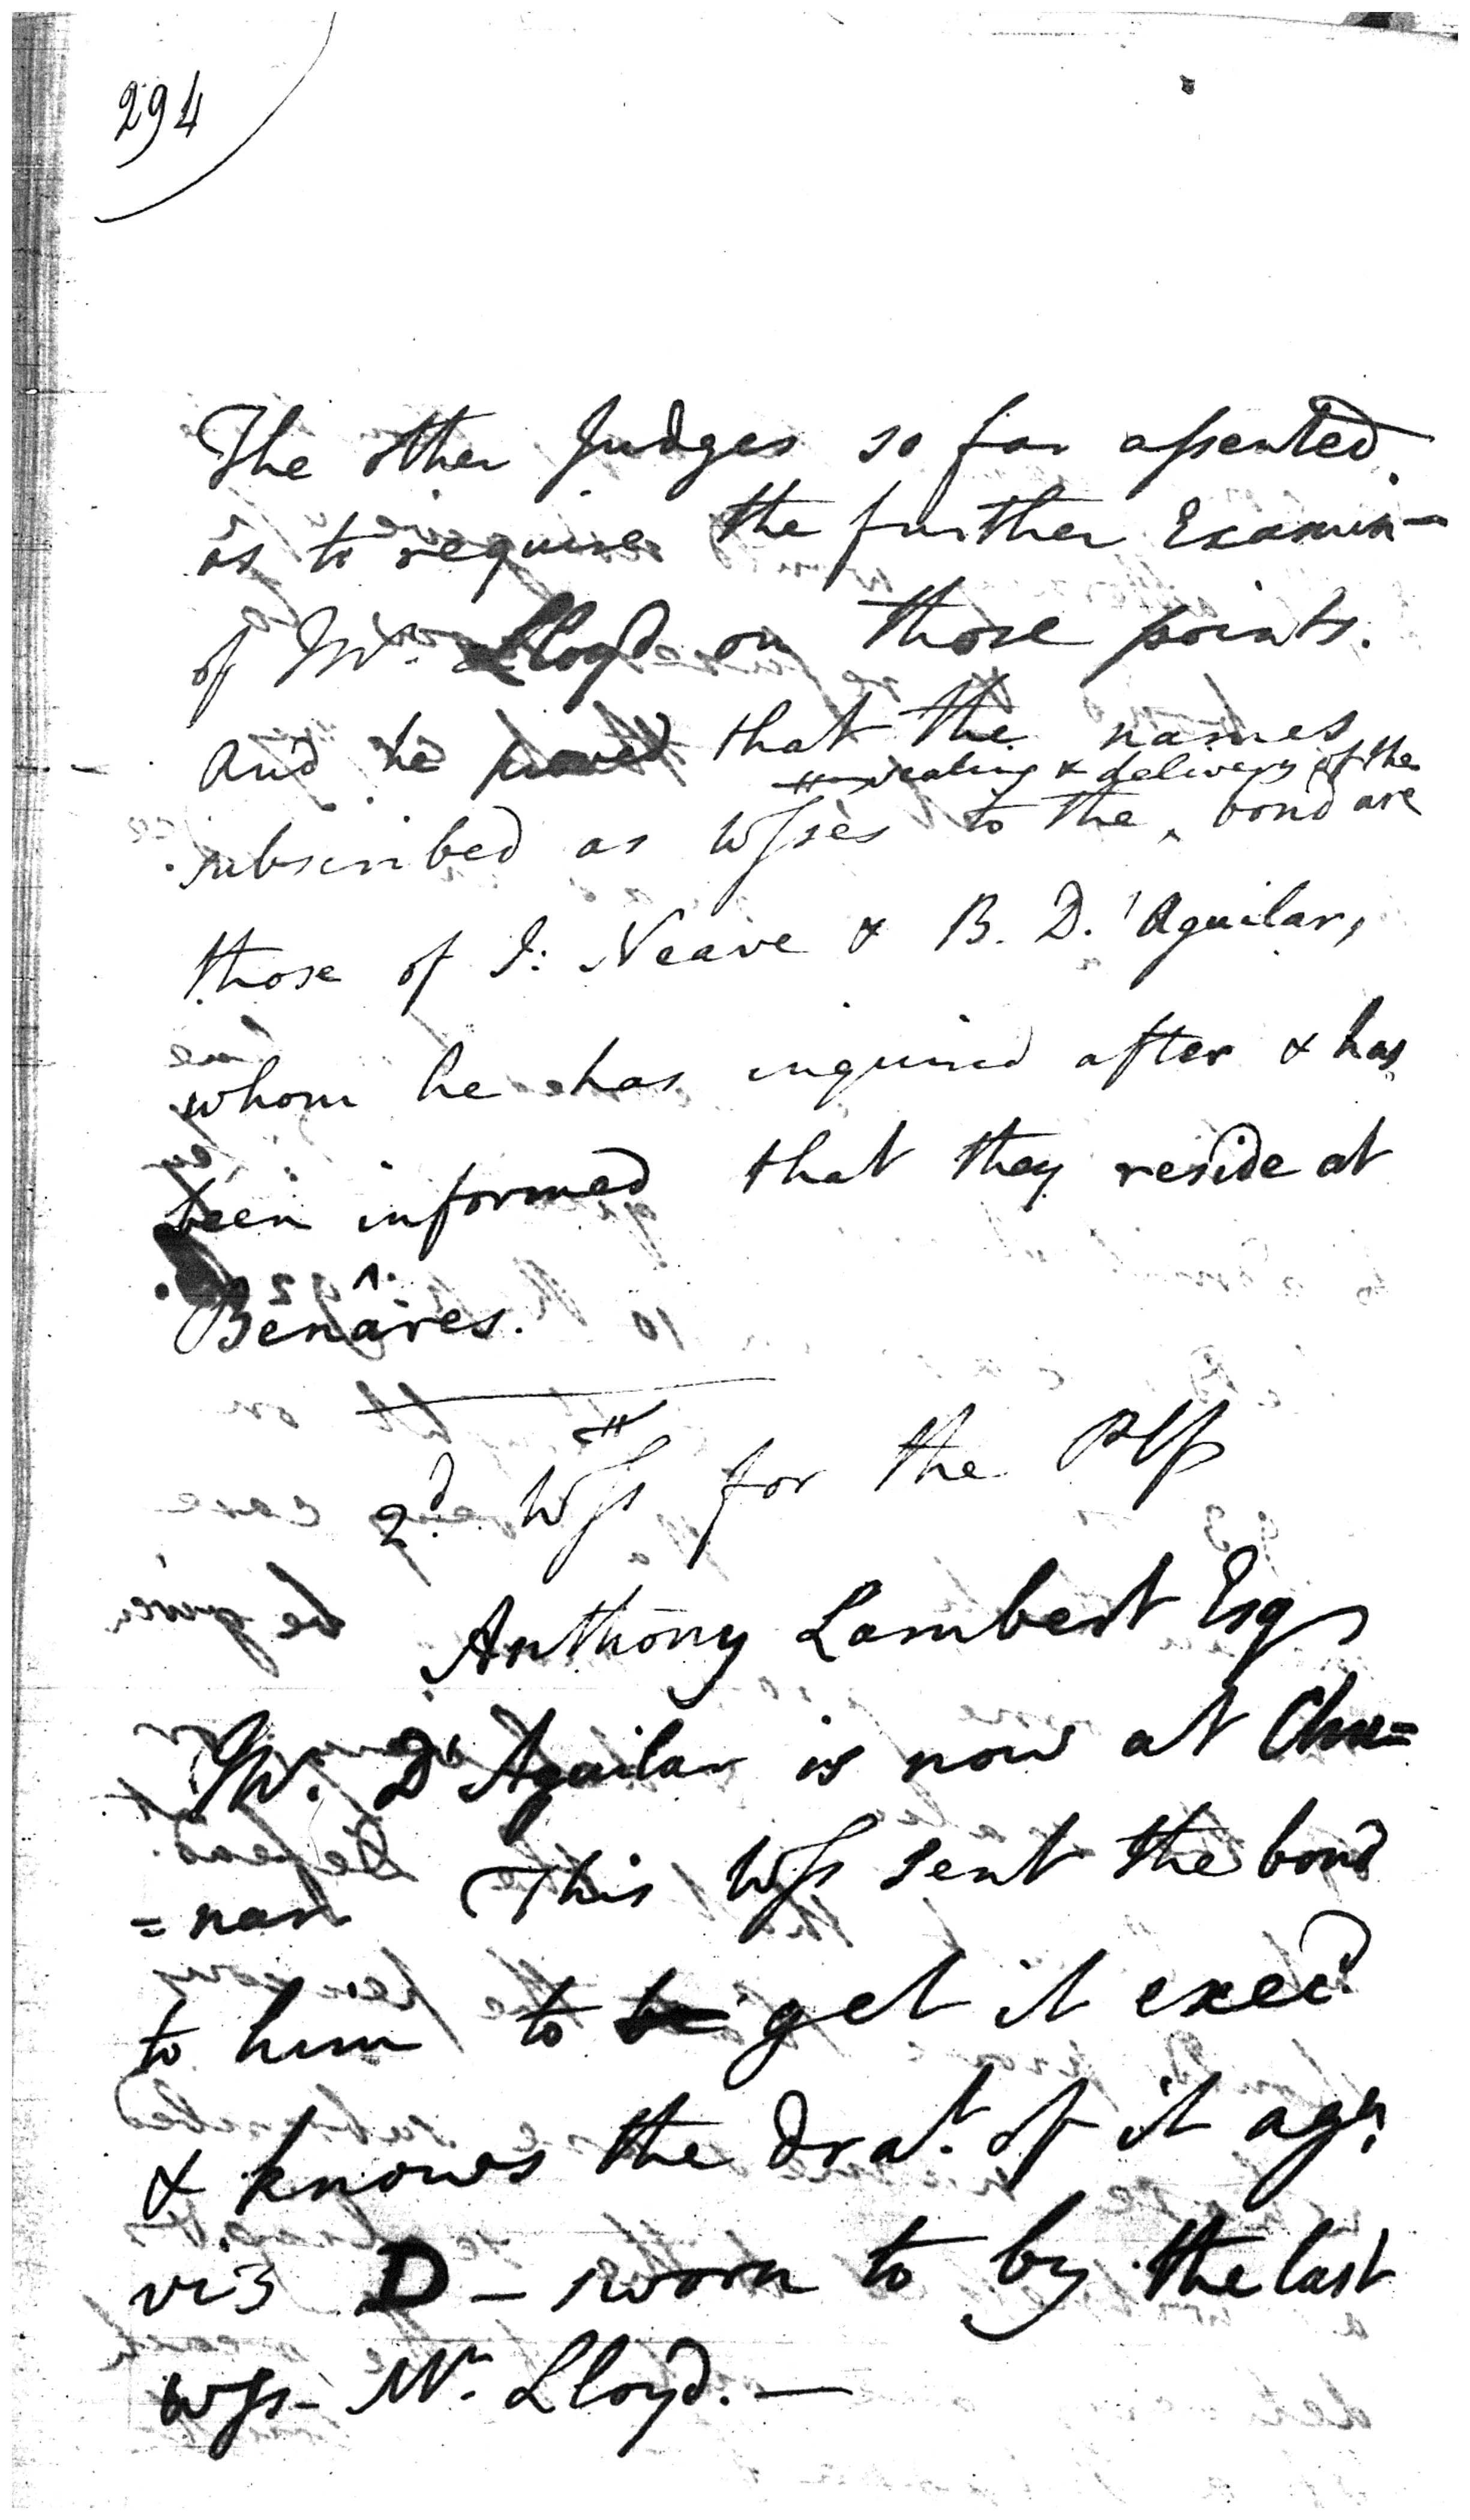 294
The other Judges so far assented
as to require the further Examin-
of Mr. Lloyd on those points.
And he proved that the names
sealing & delivery of the
subscribed as Wsses to the ^ bond are
those of J: Neave & B. D'Aguilar,
whom he has inquired after & has
been informed that they reside at
Benâres.
2d. Wss for the Plf
Anthony Lambert Esq
Mr. D'Aguilar is now at Chu=
=nar This Wss sent the bond
to him to get it execd.
& knows the Drat. of it agn.
viz D - sworn to by the last
Wss - Mr. Lloyd. —